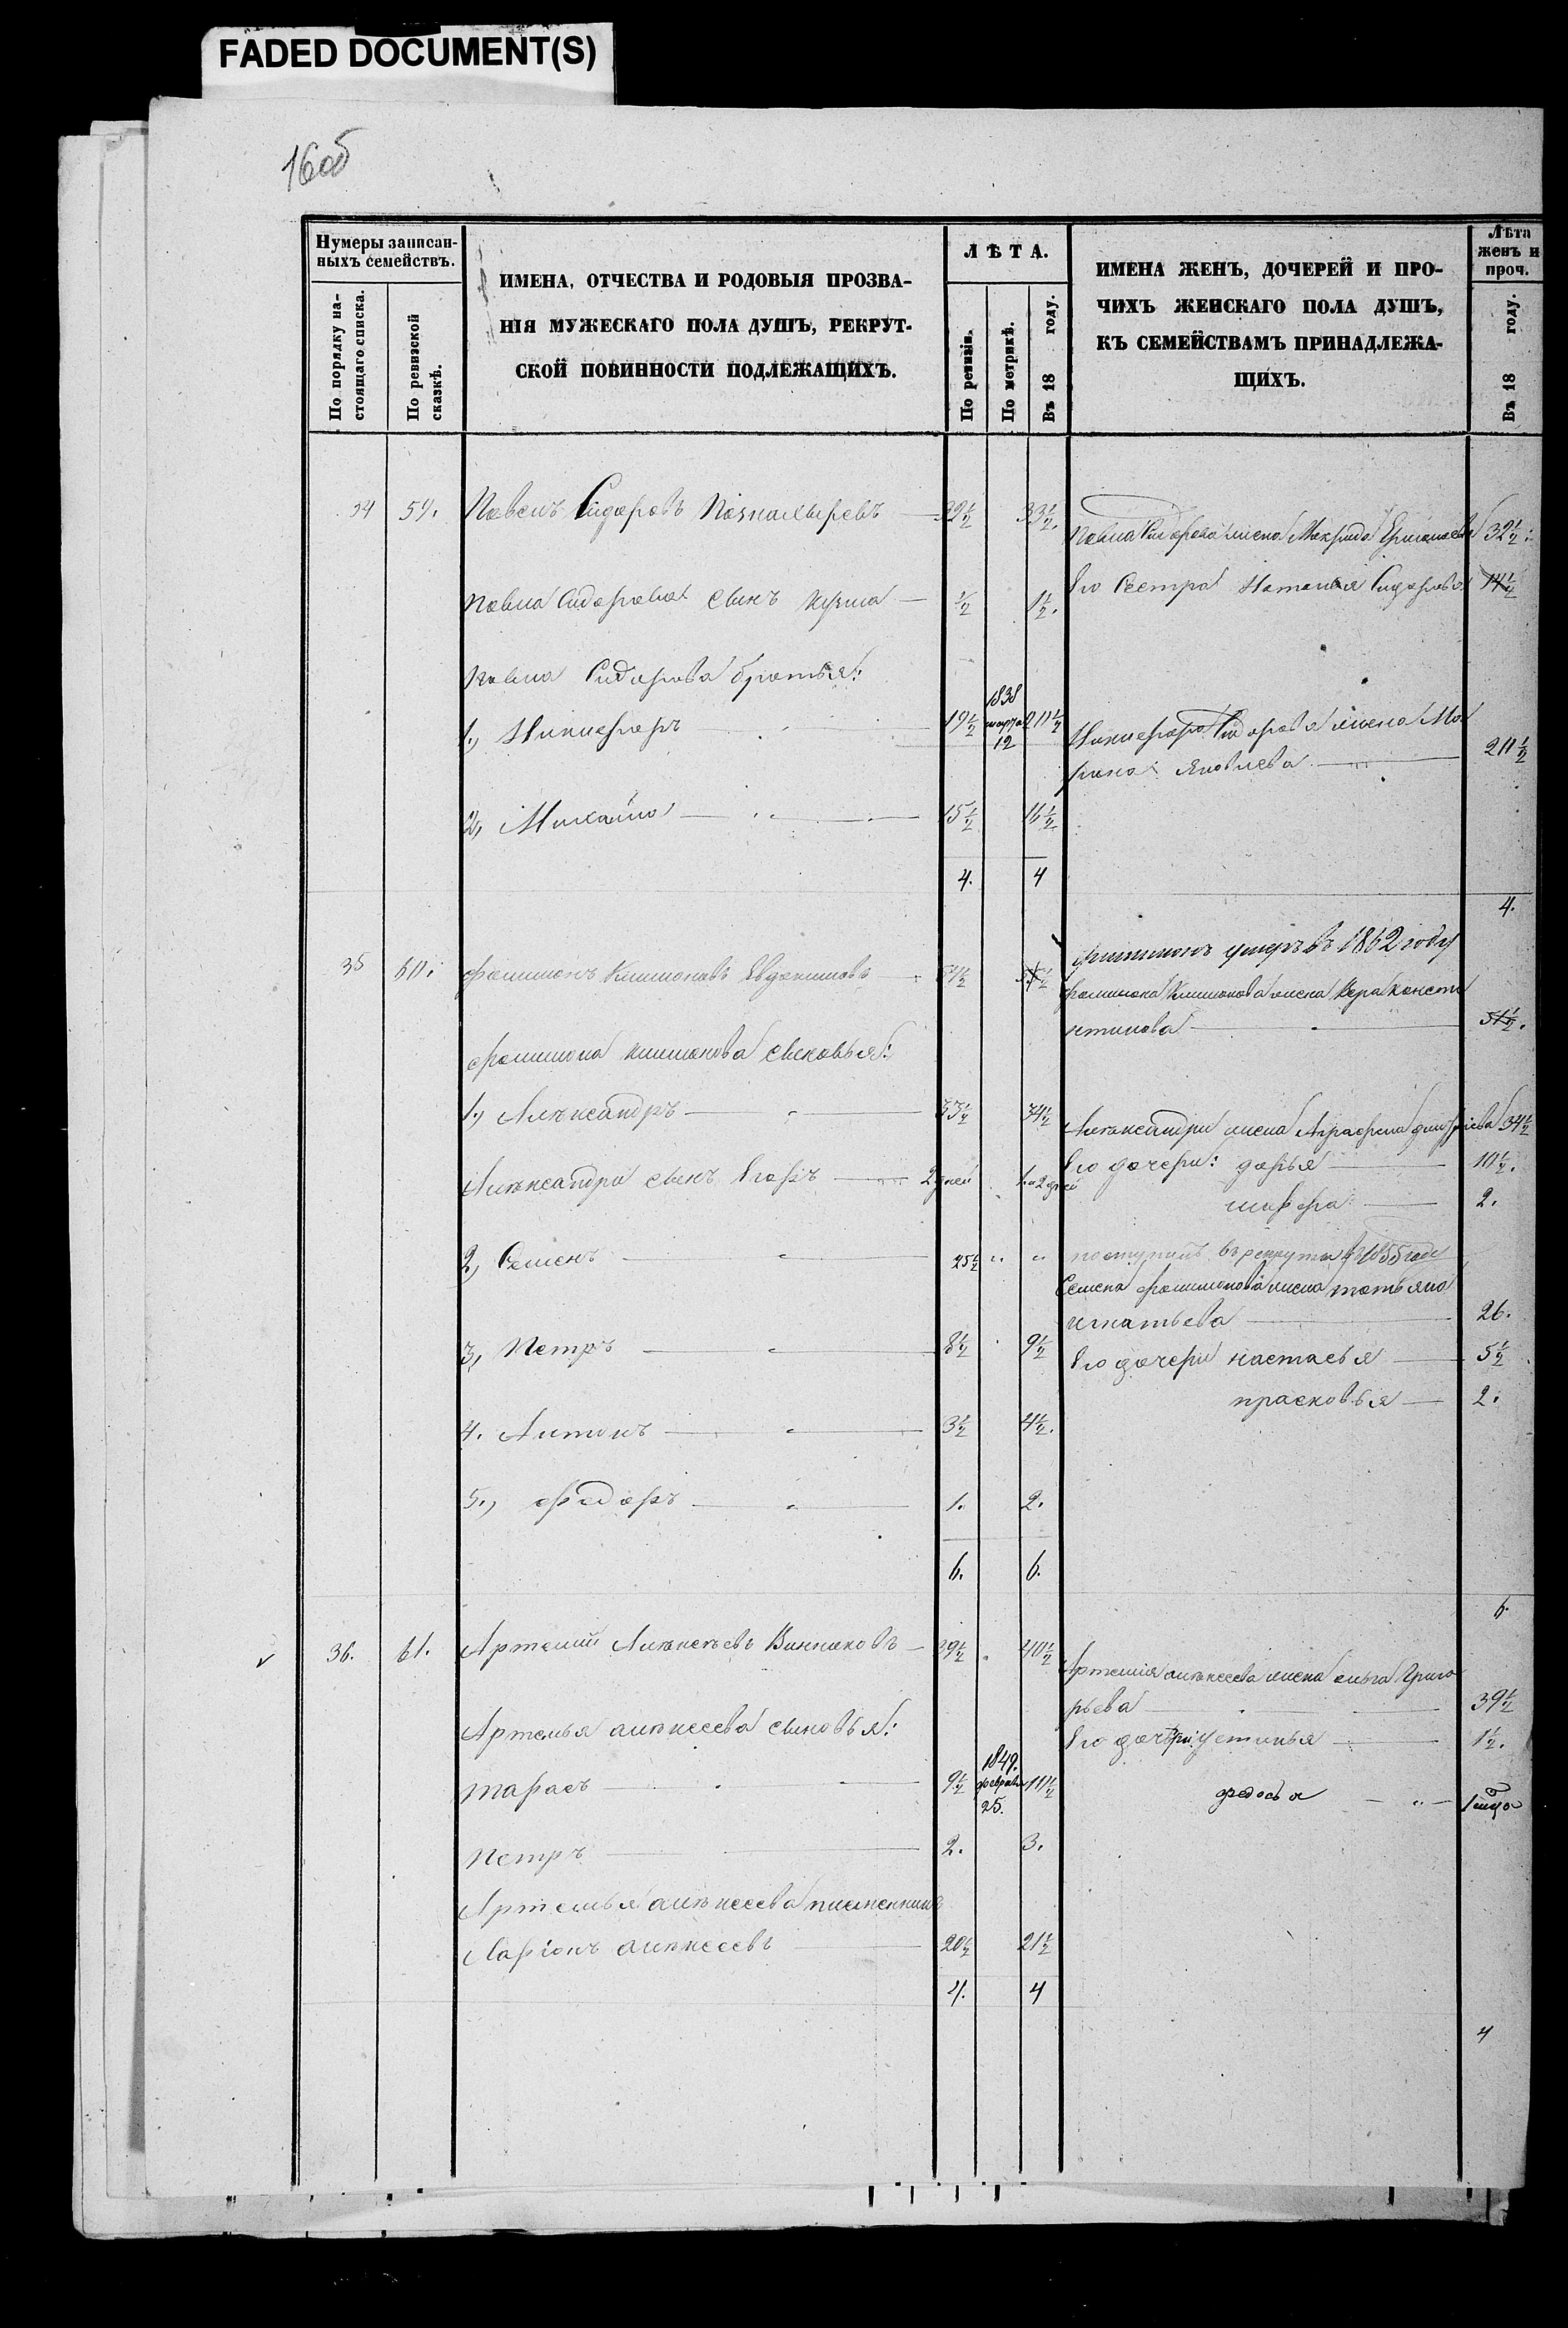 FADED DOCUMENT(S)
16об
Нумеры записан-
ныхъ семействъ.
По порядку на-
стоящаго списка.
По ревизской
сказкѣ.
ИМЕНА, ОТЧЕСТВА И РОДОВЫЯ ПРОЗВА-
НІЯ МУЖЕСКАГО ПОЛА ДУШЪ, РЕКРУТ-
СКОЙ ПОВИННОСТИ ПОДЛЕЖАЩИХЪ.
ЛѢТА.
По ревизіи.
По метрикѣ.
Въ 18 году.
ИМЕНА ЖЕНЪ, ДОЧЕРЕЙ И ПРО-
ЧИХЪ ЖЕНСКАГО ПОЛА ДУШЪ,
КЪ СЕМЕЙСТВАМЪ ПРИНАДЛЕЖА-
ЩИХЪ.
Лѣта
женъ и
проч.
Въ 18 году.
34 59. Павелъ Сидоровъ 32½ 33½.
Павла Сидорова жена Макрида 32½.
Его Сестра Наталья Сидорова 14½
Павла Сидорова сынъ Кузма ½ 1½.
Павла Сидорова братья:
1., Никифоръ 19½ 1838 марта 12 20½
Никифора Сидорова жена Ма
рина Яковлева 20½
2, Михайло 15½ 16½
4. 4
4.
35 60. Филимонъ Климоновъ Евдокимовъ 54½ 55½
Филимонъ умеръ въ 1862 году
Филимона Климонова жена Вера Конста
нтинова 51½.
Филимона Климонова сыновья:
1., Алѣксандръ 33½ 34½
Алѣксандра жена Аграфена 34½
Алѣксандра сынъ Егоръ 2 дней 1. и 2 дней
Его дочери: Дарья 10½.
2.
2, Семенъ 25½ " "
поступилъ въ рекруты въ 1855 году
Семена Филимонова жена Татьяна
Игнатьева 26.
3, Петръ 8½ 9½
Его дочери Настасья 5½
Прасковья 2.
4. Антонъ 3½ 4½.
5., Федоръ 1. 2.
6. 6.
6.
36. 61. Артемий Алѣксѣевъ Винниковъ 39½ 40½
Артемія Алѣксеева жена Ольга Григо
рьева 39½
Артемья Алѣксеева сыновья:
Его дочери Устинья 1½.
Тарасъ 9½ 1849. февраля 25. 10½
Федосья " 1 мца
Петръ 2. 3.
Артемья Алѣксеева племенникъ
Ларіонъ Алѣксеевъ 20½ 21½
4. 4
4